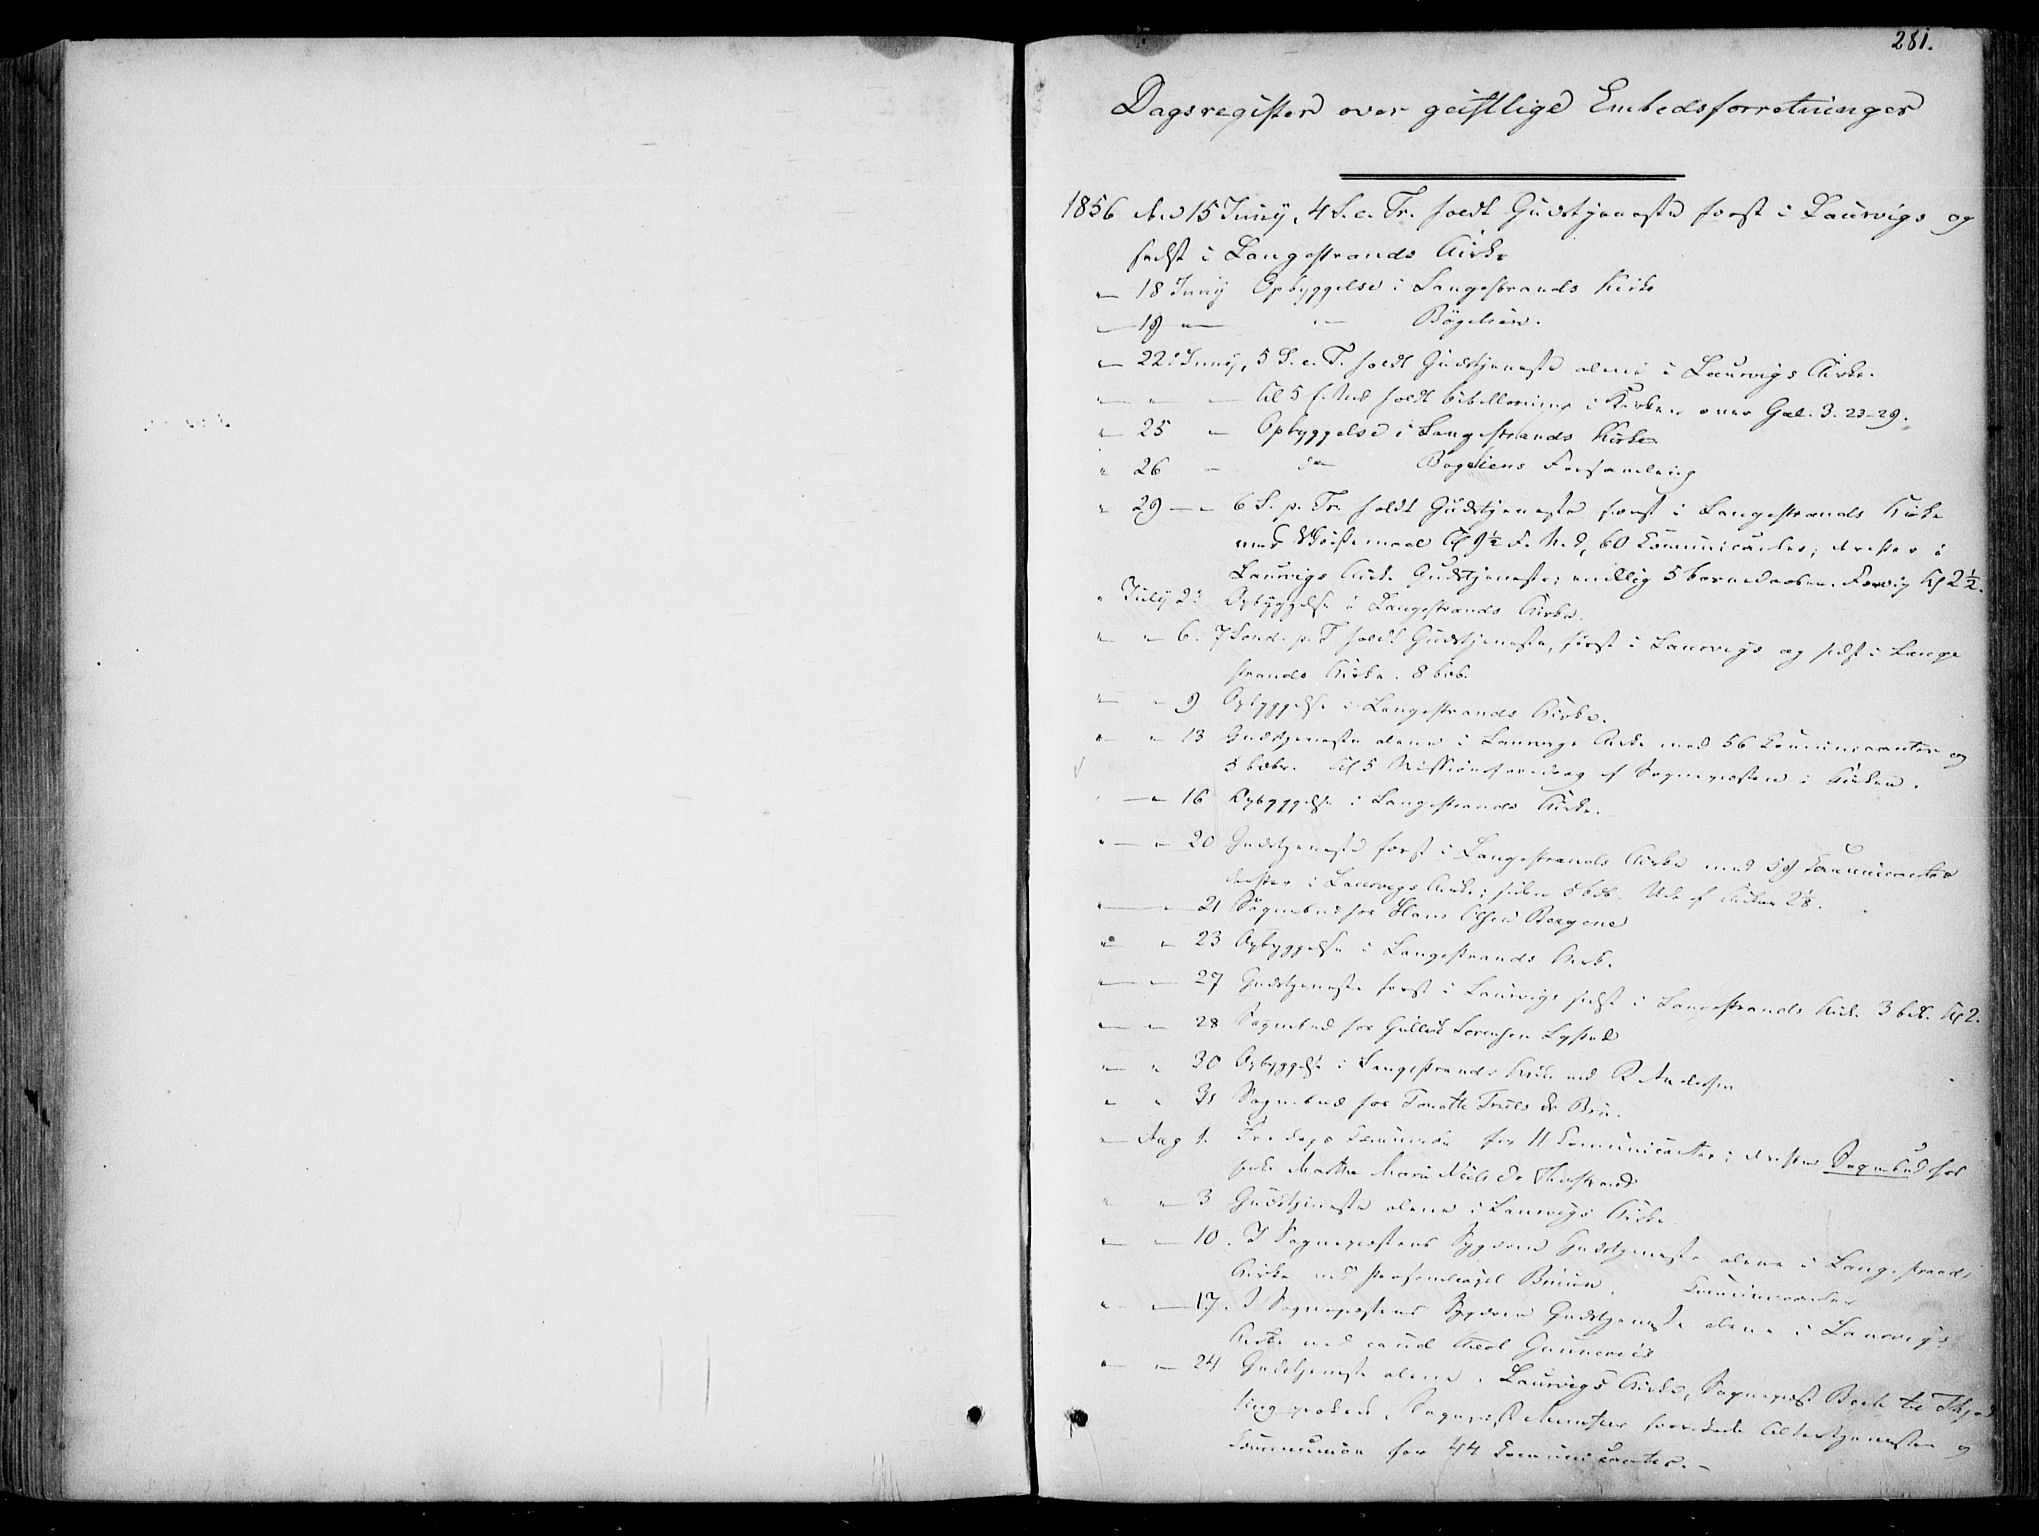 281.
Dagsregister over geistlige Embedsforretninger
1856 den 15 Juny, 4 S. e. Tr. holdt Gudstjeneste først i Laurvigs og
sidst i Langestrands Kirke
" 18 Juny Opbyggelse i Langestrands Kirke
" 19 " " Bøgelien.
" 22 Juny, 5 S. e. T. holdt Gudstjeneste alene i Laurvigs Kirke.
" " " Kl 5 holdt bibellæsning i Kirken over Gal. 3. 23-29.
" 25 " Opbyggelse i Langestrands Kirke
" 26 " do Bøgeliens Forsamling
" 29 " 6 S. p. Tr. holdt Gudstjeneste først i Langestrands Kirke
med Skriftemaal Kl 9½ 60 Communicanter; derefter i
Laurvigs Kirke Gudstjeneste; endelig 5 barnedaab. Færdig Kl 2½.
" July 2 Opbyggelse i Langestrands Kirke.
" " 6. 7 Sønd. p. T holdt Gudstjeneste, først i Laurvigs og sidst i Lange
strands Kirke. 8 bdb.
" " 9 Opbyggelse i Langestrands Kirke.
" " 13 Gudstjeneste alene i Laurvigs Kirke med 56 Communicanter og
8 bdb. Kl 5 Missionsforedrag af Sognepræsten i Kirken.
" " 16 Opbyggelse i Langestrands Kirke.
" " 20 Gudstjeneste først i Langestrands Kirke med 59 Communicanter
derefter i Laurvigs Kirke; siden 5 bdb. Ude af Kirken
" " 21 Sognebud for Hans Olsen Bergene
" " 23 Opbyggelse i Langestrands Kirke.
" " 27 Gudstjeneste først i Laurvigs sidst i Langestrands Kirke 3 bdb. Kl 2.
" " 28 Sognebud for Gullik Sørensen
" " 30 Opbyggelse i Langestrands Kirke ved R Andersen
" " 31 Sognebud for Tonette Truls dr
" Aug 1. Fredags Communion for 11 Communicanter; derefter Sognebud for
Marthe Marie Niels dr
" " 3 Gudstjeneste alene i Laurvigs Kirke
" " 10. I Sognepræstens Sygdom Gudstjeneste alene i Langestrands
Kirke ved personelcapel Bruun. Communicanter
" " 17. I Sognepræstens Sygdom Gudstjeneste alene i Laurvigs
Kirke ved cand theol Gunnerius
" " 24 Gudstjeneste alene i Laurvigs Kirke, Sognepræst Bech til Thjød
ling prækede, Sognepræst Munster forrettede Altertjenesten og
Communion for 44 Communicanter. -